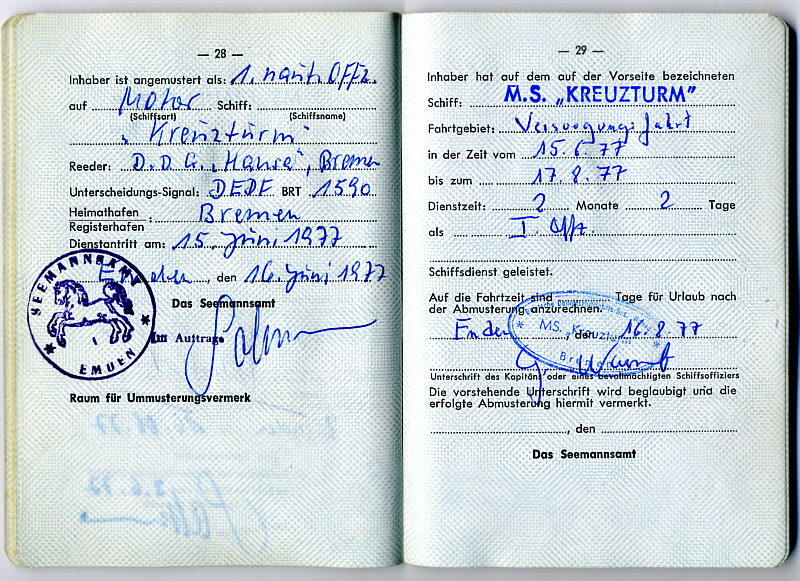 — 28 —
Inhaber ist angemustert als: 1. naut. Offz.
auf Motor Schiff:
(Schiffsart) (Schiffsname)
„Kreuzturm"
Reeder: D.D.G. „Hansa", Bremen
Unterscheidungs-Signal: DEDF BRT 1590
Heimathafen : Bremen
Registerhafen
Dienstantritt am: 15. Juni 1977
Emden, den 16. Juni 1977
Das Seemannsamt
Im Auftrage
SEEMANNSAMT
1
EMDEN
Raum für Ummusterungsvermerk
— 29 —
Inhaber hat auf dem auf der Vorseite bezeichneten
Schiff: M.S. „KREUZTURM"
Fahrtgebiet: Versorgungsfahrt
in der Zeit vom 15.6.77
bis zum 17.8.77
Dienstzeit: 2 Monate 2 Tage
als I. Offz.
Schiffsdienst geleistet.
Auf die Fahrtzeit sind Tage für Urlaub nach
der Abmusterung anzurechnen.
Emden, den 16.8.77
MS. „Kreuzturm"
Unterschrift des Kapitäns oder eines bevollmächtigten Schiffsoffiziers
Die vorstehende Unterschrift wird beglaubigt und die
erfolgte Abmusterung hiermit vermerkt.
, den
Das Seemannsamt